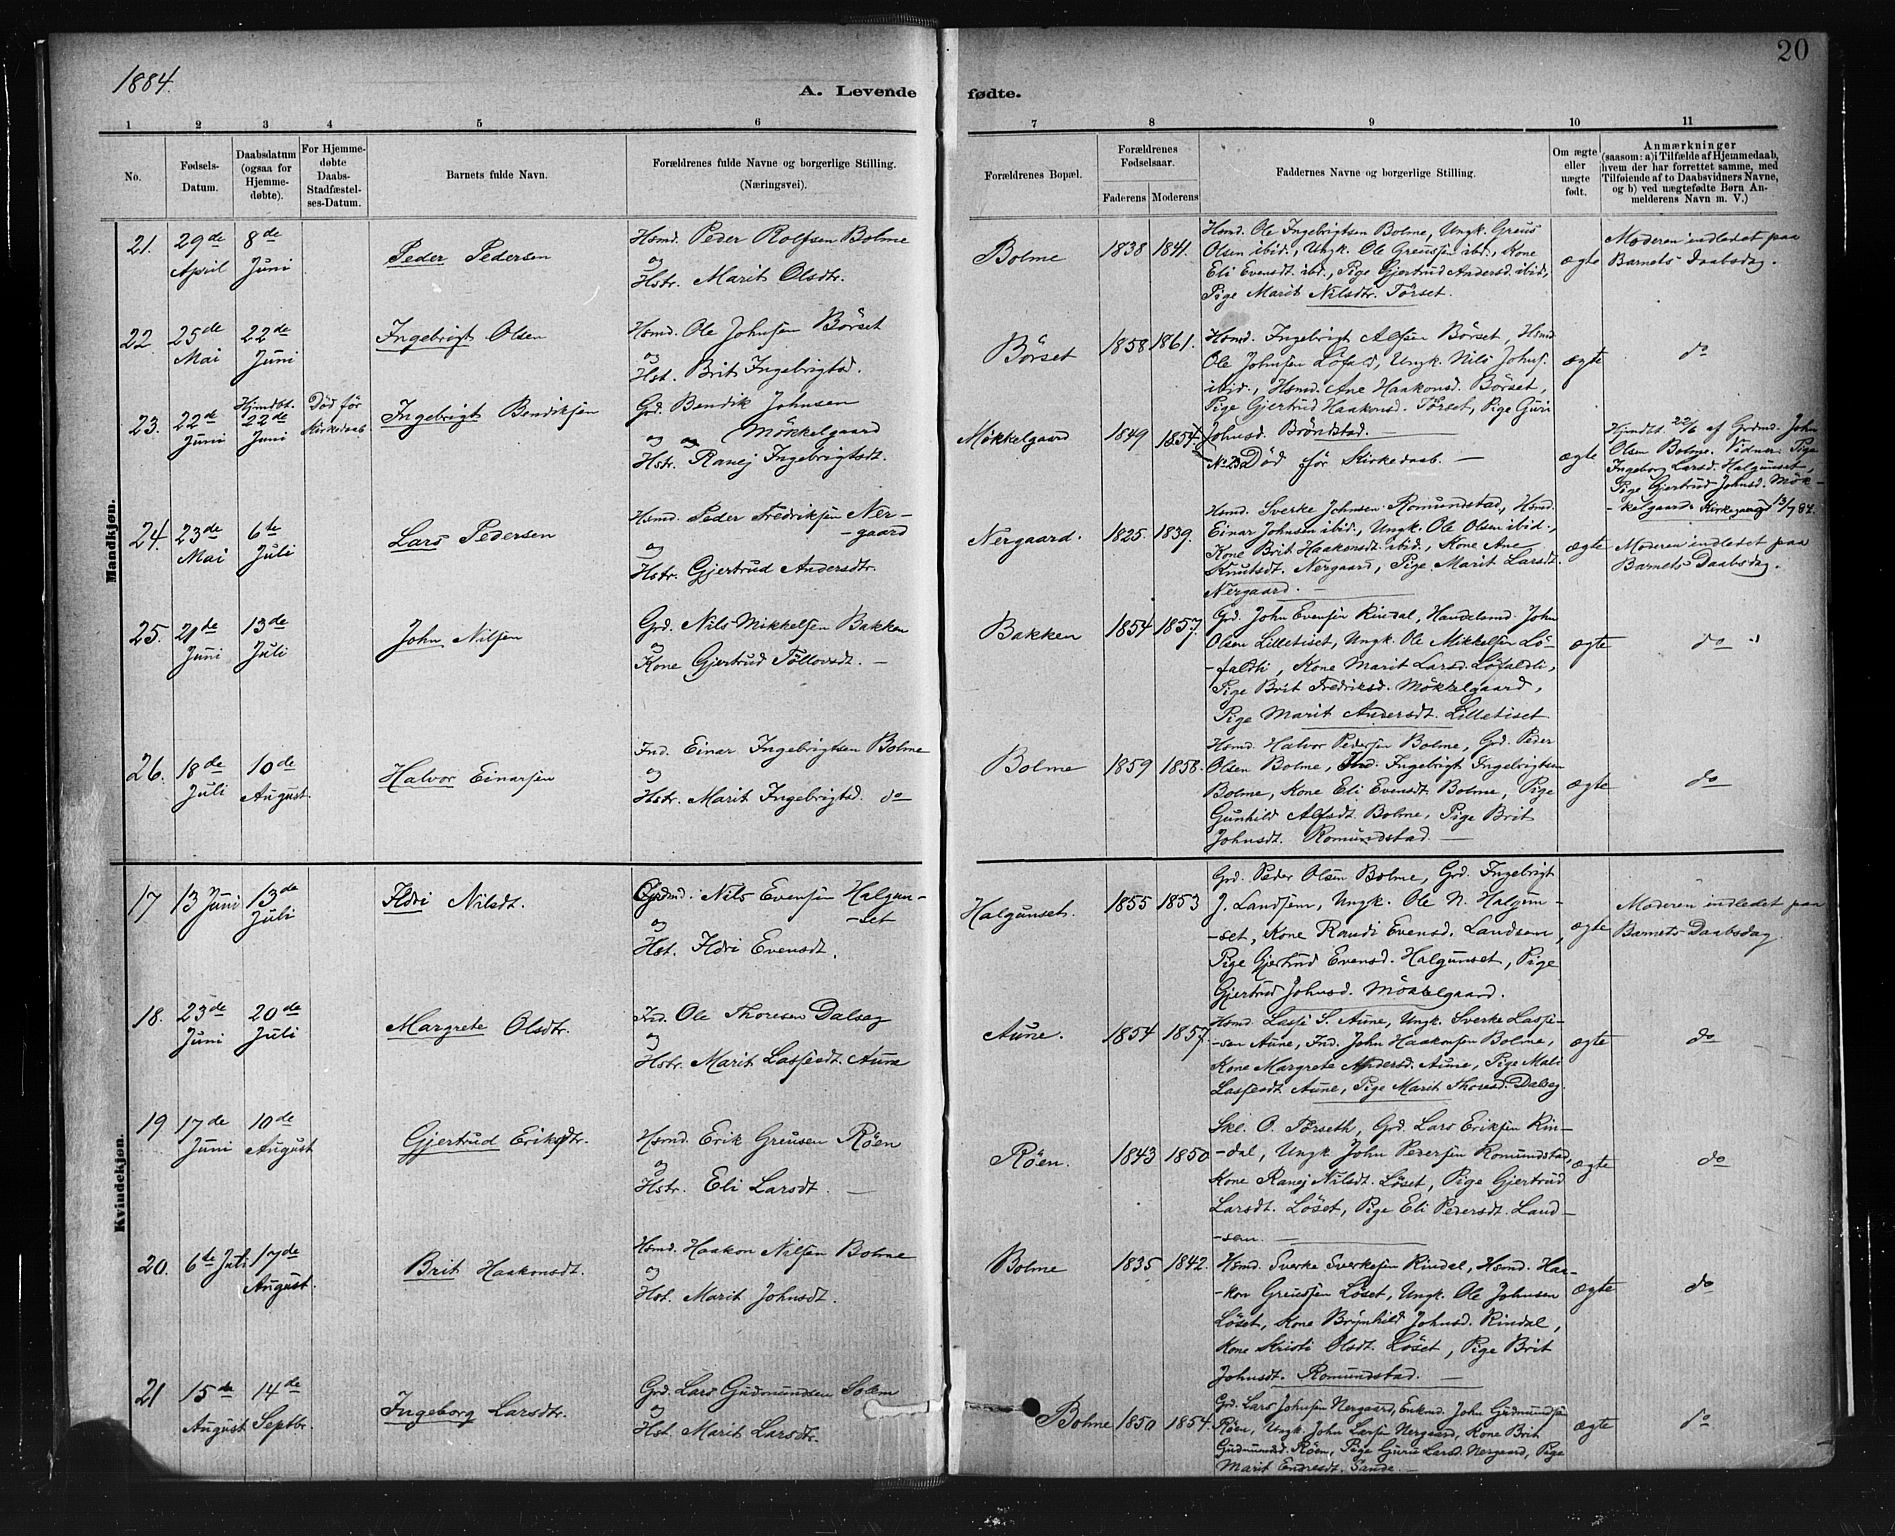 20
1884.
A. Levende fødte.
1 2 3 4 5 6 7 8 9 10 11
No.
Fødsels-
Datum.
Daabsdatum
(ogsaa for
Hjemme-
døbte).
For Hjemme-
døbte
Daabs-
Stadfæstel-
ses-Datum.
Barnets fulde Navn.
Forældrenes fulde Navne og borgerlige Stilling.
(Næringsvei).
Forældrenes Bopæl.
Forældrenes
Fødselsaar.
Faderens Moderens
Faddernes Navne og borgerlige Stilling.
Om ægte
eller
uægte
født.
Anmærkninger
(saasom: a) i Tilfælde af Hjemmedaab,
hvem der har forrettet samme, med
Tilføiende af to Daabsvidners Navne,
og b) ved uægtefødte Børn An-
melderens Navn m. V.)
Mandkjøn.
21. 29de April
8de Juni
Peder Pedersen
Hsmd. Peder Rolfsen Bolme
og
Hstr. Marit Olsdtr.
Bolme
1838 1841.
Hsmd. Ole Ingebrigtsen Bolme, Ungk. Greus
Olsen ibid., Ungk. Ole Greussen ibd., Kone
Eli Evensdt. ibd., Pige Gjertrud Andersd. ibid,
Pige Marit Nilsdtr. Törset.
ægte
Moderen indledet paa
Barnets Daabsdag.
22. 25de Mai
22de Juni
Ingebrigt Olsen
Hsmd. Ole Johnsen Börset
og
Hst. Brit Ingebrigtsd.
Börset
1858 1861.
Hsmd. Ingebrigt Alfsen Börset, Hsmd
Ole Johnsen Löfald, Ungk. Nils Johns.
ibid., Hsmd. Ane Haakonsd. Börset,
Pige Gjertrud Haakonsd. Törset, Pige Guri
Johnsd. Bröndstad.
ægte
do
23. 22de Juni
Hjmdbt. 22de Juni
Död för
Kirkedaab
Ingebrigt Bendiksen
Grd. Bendik Johnsen
og Mökkelgaard
Hstr. Ranej Ingebrigtsdt.
Mökkelgaard
1849 1854.
No 23 Död för Kirkedaab. —
ægte
Hjmdbt. 22/6 af Grdmd. John
Olsen Bolme. Vidner Pige
Ingeborg Larsd. Halgunset,
Pige Gjertrud Johnsd. Mök-
kelgaard. Kirkegang 13/7 84.
24. 23de Mai
6te Juli
Lars Pedersen
Hsmd. Peder Fredriksen Ner-
-gaard
og
Hstr. Gjertrud Andersdtr.
Nergaard.
1825. 1839.
Hsmd. Sverke Johnsen Romundstad, Hsmd.
Einar Johnsen ibid., Ungk. Ole Olsen ibid.,
Kone Brit Haakensdt. ibid., Kone Ane
Knutsdt. Nergaard, Pige Marit Larsdt.
Nergaard.
ægte
Moderen indledet paa
Barnets Daabsdag.
25. 21de Juni
13de Juli
John Nilsen
Grd. Nils Mikkelsen Bakken
og
Kone Gjertrud Töllovsdt. —
Bakken
1854 1857.
Grd. John Evensen Rindal, Handelsmd. John
Olsen Lilletiset, Ungk. Ole Mikkelsen Lö-
-faldli, Kone Marit Larsd. Löfaldli,
Pige Brit Fredriksd. Mökkelgaard,
Pige Marit Andersdt. Lilletiset.
ægte
do
26. 18de Juli
10de August.
Halvor Einarsen
Ind. Einar Ingebrigtsen Bolme
og
Hstr. Marit Ingebrigtsd. do
Bolme
1859 1858.
Hsmd. Halvor Pedersen Bolme, Grd. Peder
Olsen Bolme, Ind. Ingebrigt Ingebrigtsen
Bolme, Kone Eli Evensdt. Bolme, Pige
Gunhild Alfsdt. Bolme, Pige Brit
Johnsdt. Romundstad. —
ægte
do
Kvindekjøn.
17 13 Juni
13de Juli
Ildri Nilsdt.
Grdmd. Nils Evensen Halgun-
-set
og
Hst. Ildri Evensdt.
Halgunset.
1855 1853
Grd. Peder Olsen Bolme, Grd. Ingebrigt
J. Landsem, Ungk. Ole N. Halgun-
-set, Kone Randi Evensd. Landsem,
Pige Gjertrud Evensd. Halgunset, Pige
Gjertrud Johnsd. Mökkelgaard.
ægte
Moderen indledet paa
Barnets Daabsdag
18. 23de Juni
20de Juli
Margrete Olsdtr.
Ind. Ole Thoresen Dalseg
og
Hstr. Marit Lassesdt. Aune
Aune.
1854 1857.
Hsmd. Lasse S. Aune, Ungk. Sverke Lasse-
-sen Aune, Ind. John Haakonsen Bolme,
Kone Margrete Andersd. Aune, Pige Mali
Lassesdt. Aune, Pige Marit Thoresd. Dalseg.
ægte
do
19 17de Juni
10de August
Gjertrud Eriksdtr.
Hsmd. Erik Greusen Röen
og
Hstr. Eli Larsdt. —
Röen.
1843 1850
Skl. O. Törseth, Grd. Lars Eriksen Rin-
-dal, Ungk. John Pedersen Romundstad,
Kone Ranej Nilsdt. Löset, Pige Gjertrud
Larsdt. Löset, Pige Eli Pedersdt. Land-
-sem. —
ægte
do
20. 6te Juli
17de August.
Brit Haakonsdt.
Hsmd. Haakon Nilsen Bolme
og
Hst. Marit Johnsdt.
Bolme
1835 1842.
Hsmd. Sverke Sverkesen Rindal, Hsmd. Haa-
-kon Greussen Löset, Ungk. Ole Johnsen
Löset, Kone Brynhild Johnsd. Rindal,
Kone Kristi Olsdt. Löset, Pige Brit
Johnsdt. Romundstad. —
ægte
do
21 15de August
14de Septbr.
Ingeborg Larsdtr.
Grd. Lars Gudmundsen Solem
og
Hst. Marit Larsdtr.
Bolme
1850 1854.
Grd. Lars Johnsen Nergaard, Enkmd. John Gudmundsen
Röen, Ungk. John Larsen Nergaard, Kone Brit
Gudmundsd. Röen, Pige Guru Larsd. Nergaard, Pige
Marit Endresdt. Sande. —
ægte
do